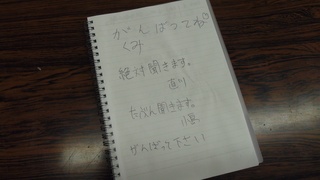 がんばってね。
くみ
絶対聞きます。
直り
たぶん聞きます。
小島
がんばって下さい